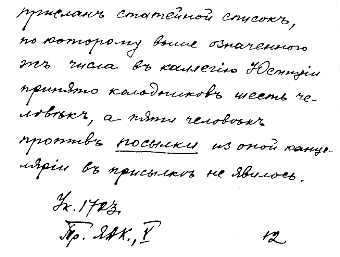 присланъ статейной списокъ,
по которому выше означенного
жъ числа въ коллегію Юстиціи
принято колодниковъ шесть че-
ловѣкъ, а пяти человѣкъ
противъ посылки из оной канце-
ляріи въ присылкѣ не явилось.
Ук. 1723.
Тр. ЯАК., V
12